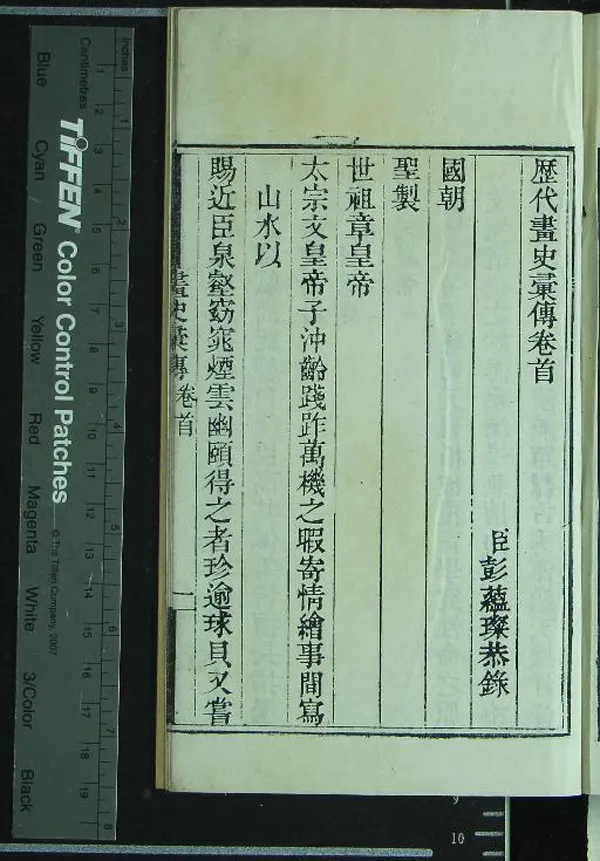 歷代畫史彙傳卷首
臣彭蘊璨恭錄
國朝
聖製
世祖章皇帝
太宗文皇帝子沖齡踐阼萬機之暇寄情繪事間寫
山水以
賜近臣泉壑窈窕煙雲幽頤得之者珍逾球貝又嘗
畫史彙傳 卷首 一
Inches
Centimetres
TIFFEN® Color Control Patches
© The Tiffen Company, 2007
Blue
Cyan
Green
Yellow
Red
Magenta
White
3/Color
Black
1
2
3
4
5
6
7
8
1
2
3
4
5
6
7
8
9
10
11
12
13
14
15
16
17
18
19
9
10